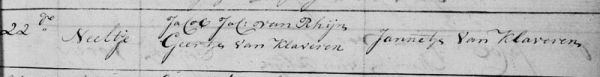 22 de Neeltje Jacob Jac: van Rhijn
Geertje van Klaveren Jannetje van Klaveren